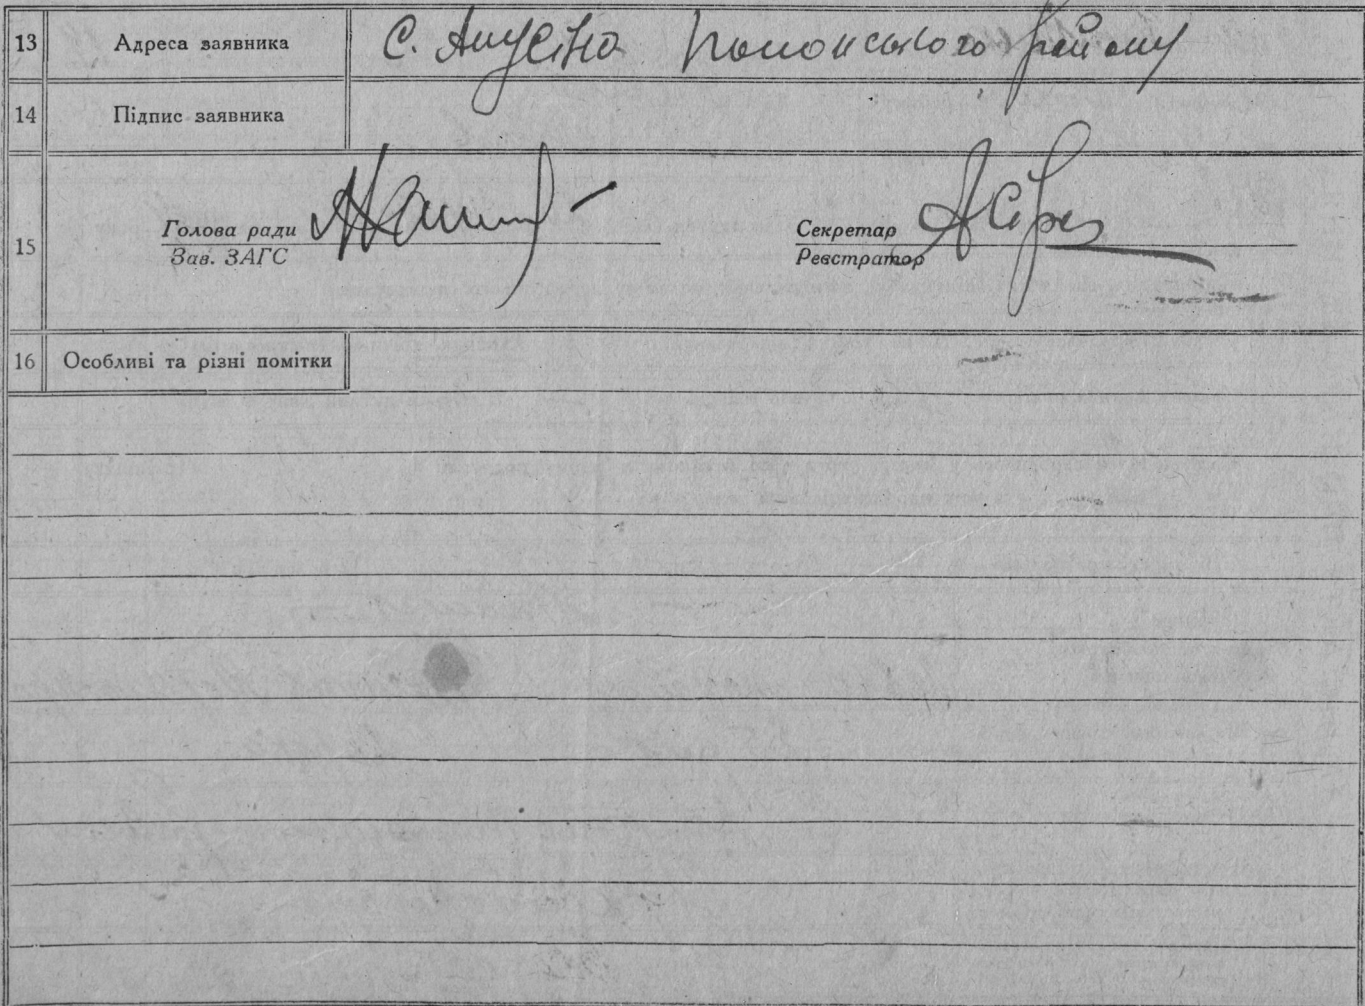 13 Адреса заявника С. Онусіно Полонського району
14 Підпис заявника
15 Голова ради Секретар
Зав. ЗАГС Реєстратор
16 Особливі та різні помітки